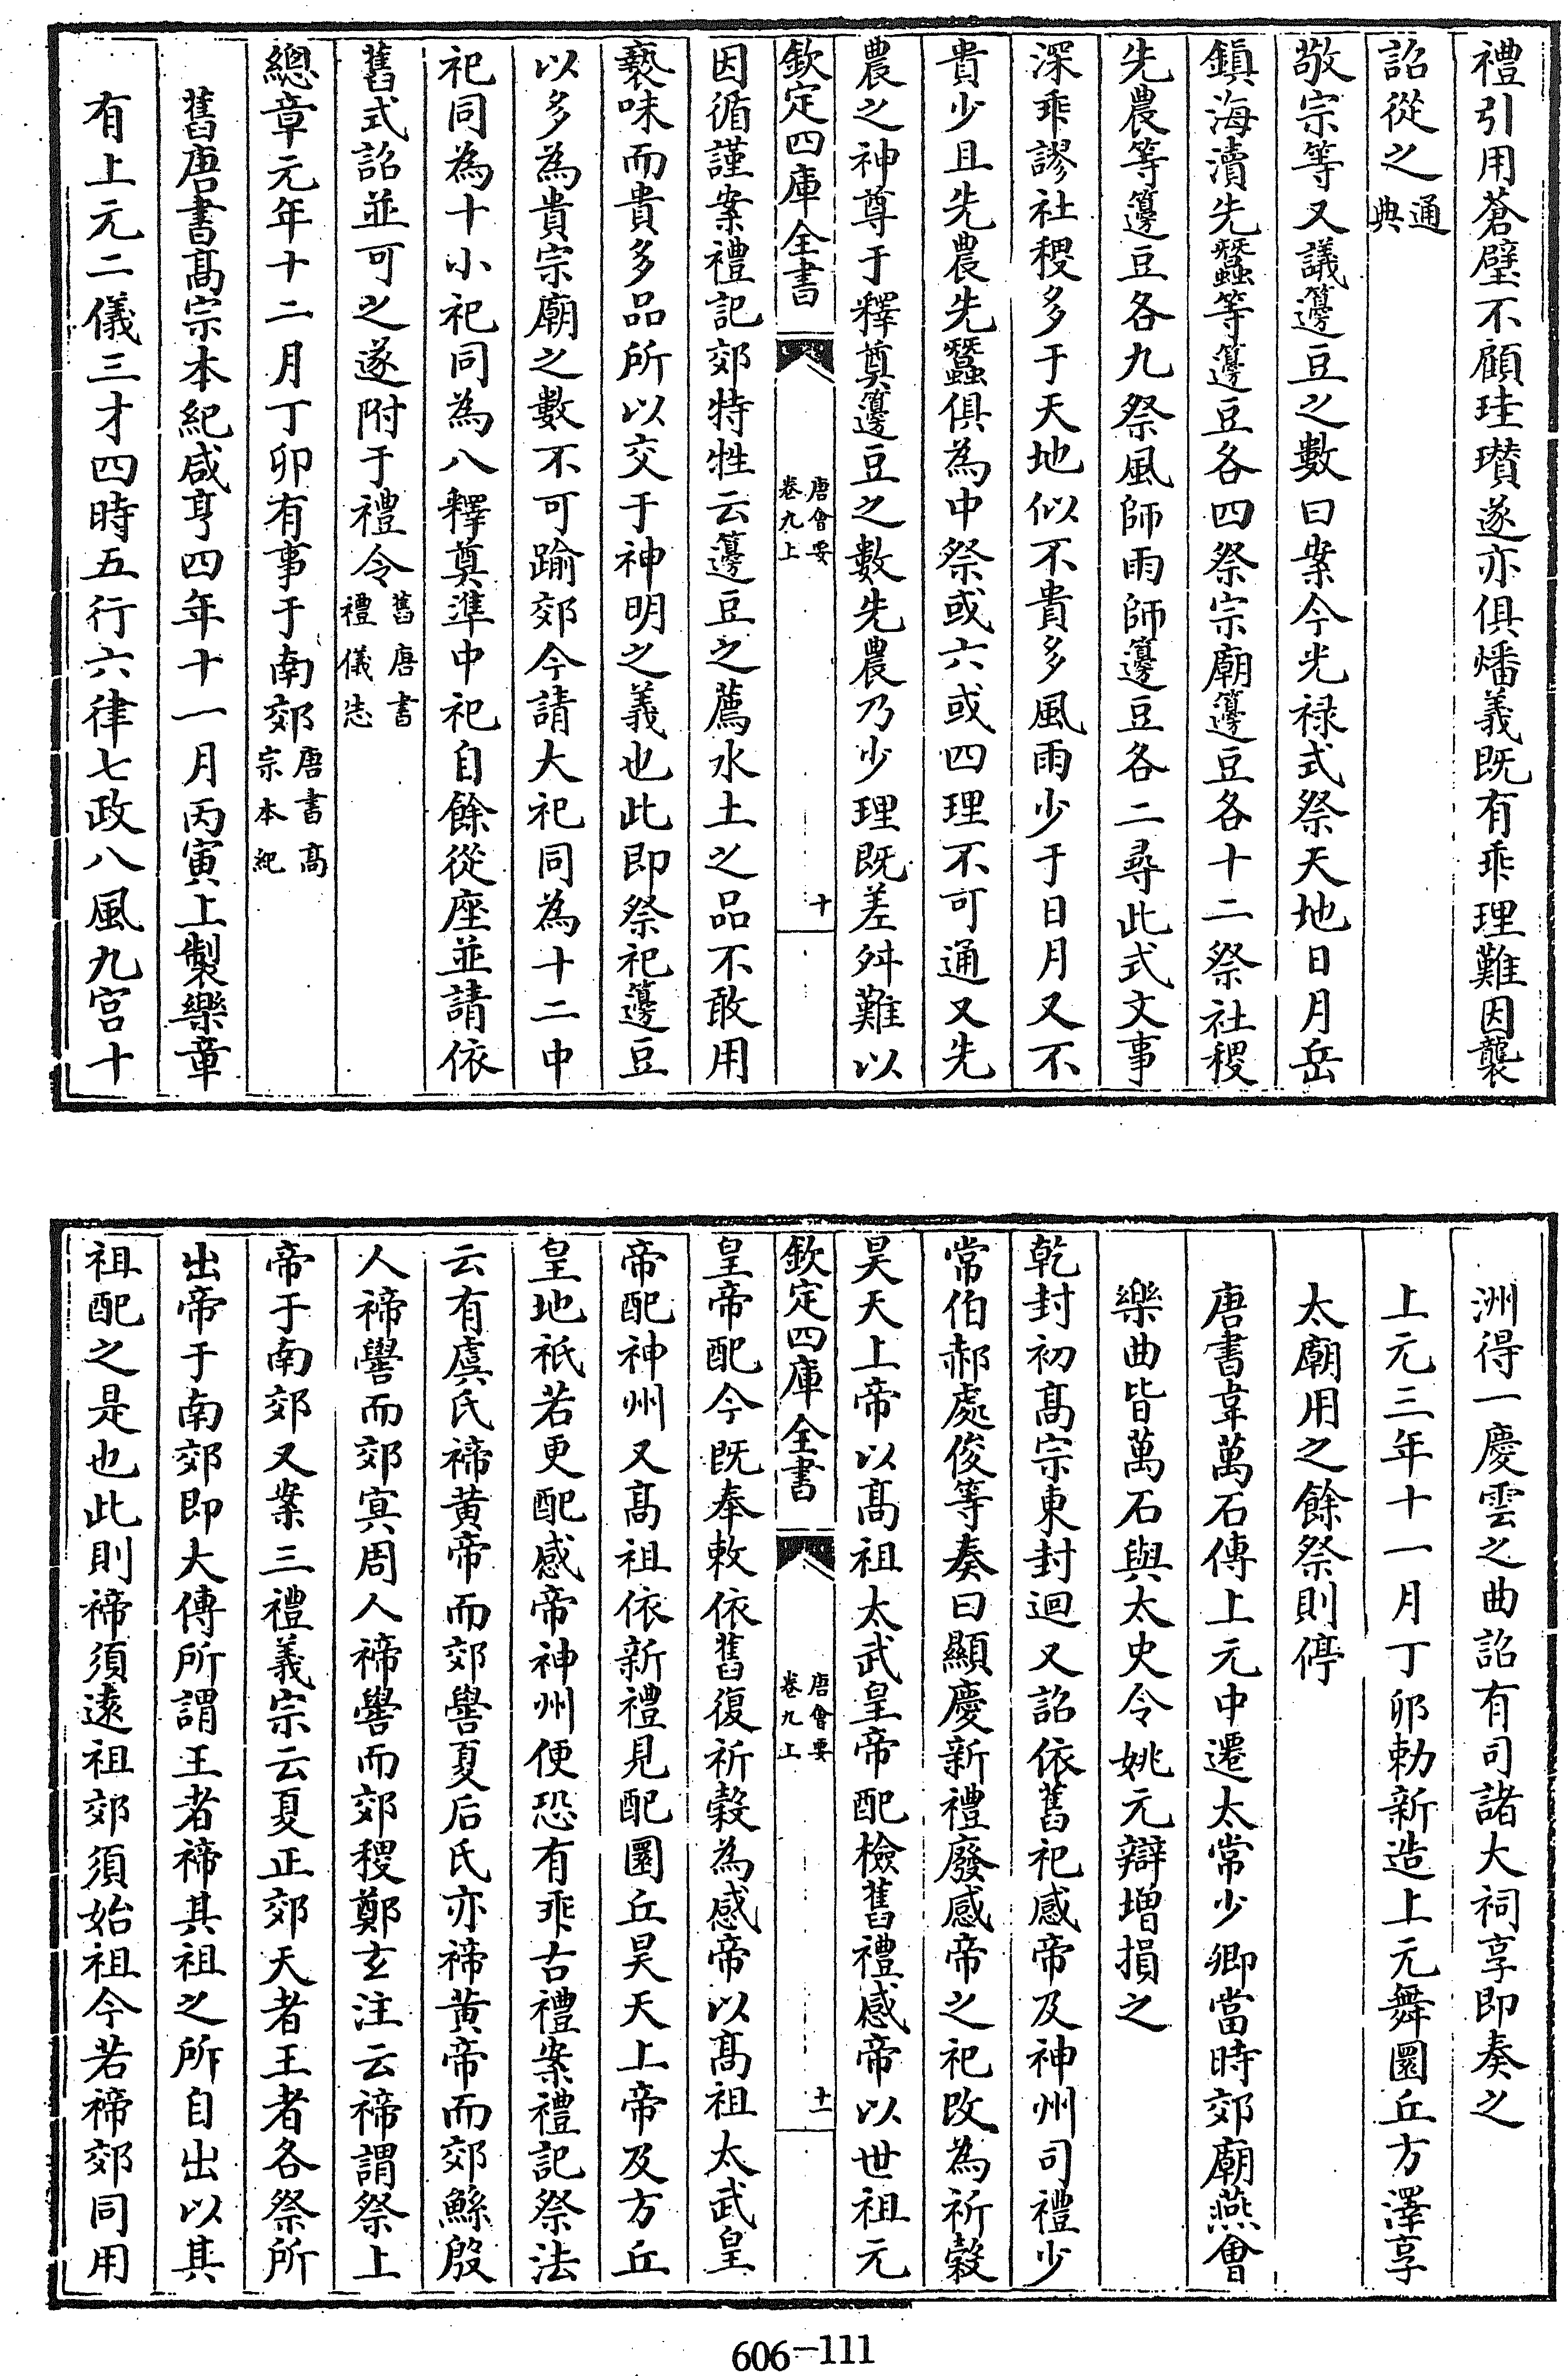 禮引用蒼璧不顧珪瓚遂亦俱燔義既有乖理難因襲
詔從之通典
敬宗等又議籩豆之數曰案今光祿式祭天地日月岳
鎮海瀆先蠶等籩豆各四祭宗廟籩豆各十二祭社稷
先農等籩豆各九祭風師雨師籩豆各二尋此式文事
深乖謬社稷多于天地似不貴多風雨少于日月又不
貴少且先農先蠶俱為中祭或六或四理不可通又先
農之神尊于釋奠籩豆之數先農乃少理既差舛難以
欽定四庫全書 唐會要卷九上 十
因循謹案禮記郊特牲云籩豆之薦水土之品不敢用
褻味而貴多品所以交于神明之義也此即祭祀籩豆
以多為貴宗廟之數不可踰郊今請大祀同為十二中
祀同為十小祀同為八釋奠準中祀自餘從座並請依
舊式詔並可之遂附于禮令舊唐書禮儀志
總章元年十二月丁卯有事于南郊唐書高宗本紀
舊唐書高宗本紀咸亨四年十一月丙寅上製樂章
有上元二儀三才四時五行六律七政八風九宮十
洲得一慶雲之曲詔有司諸大祠享即奏之
上元三年十一月丁卯勅新造上元舞圜丘方澤享
太廟用之餘祭則停
唐書韋萬石傳上元中遷太常少卿當時郊廟燕會
樂曲皆萬石與太史令姚元辯增損之
乾封初高宗東封迴又詔依舊祀感帝及神州司禮少
常伯郝處俊等奏曰顯慶新禮廢感帝之祀改為祈穀
昊天上帝以高祖太武皇帝配檢舊禮感帝以世祖元
欽定四庫全書 唐會要卷九上 十一
皇帝配今既奉敕依舊復祈穀為感帝以高祖太武皇
帝配神州又高祖依新禮見配圜丘昊天上帝及方丘
皇地祇若更配感帝神州便恐有乖古禮案禮記祭法
云有虞氏禘黃帝而郊嚳夏后氏亦禘黃帝而郊鯀殷
人禘嚳而郊冥周人禘嚳而郊稷鄭玄注云禘謂祭上
帝于南郊又案三禮義宗云夏正郊天者王者各祭所
出帝于南郊即大傳所謂王者禘其祖之所自出以其
祖配之是也此則禘須遠祖郊須始祖今若禘郊同用
606-111